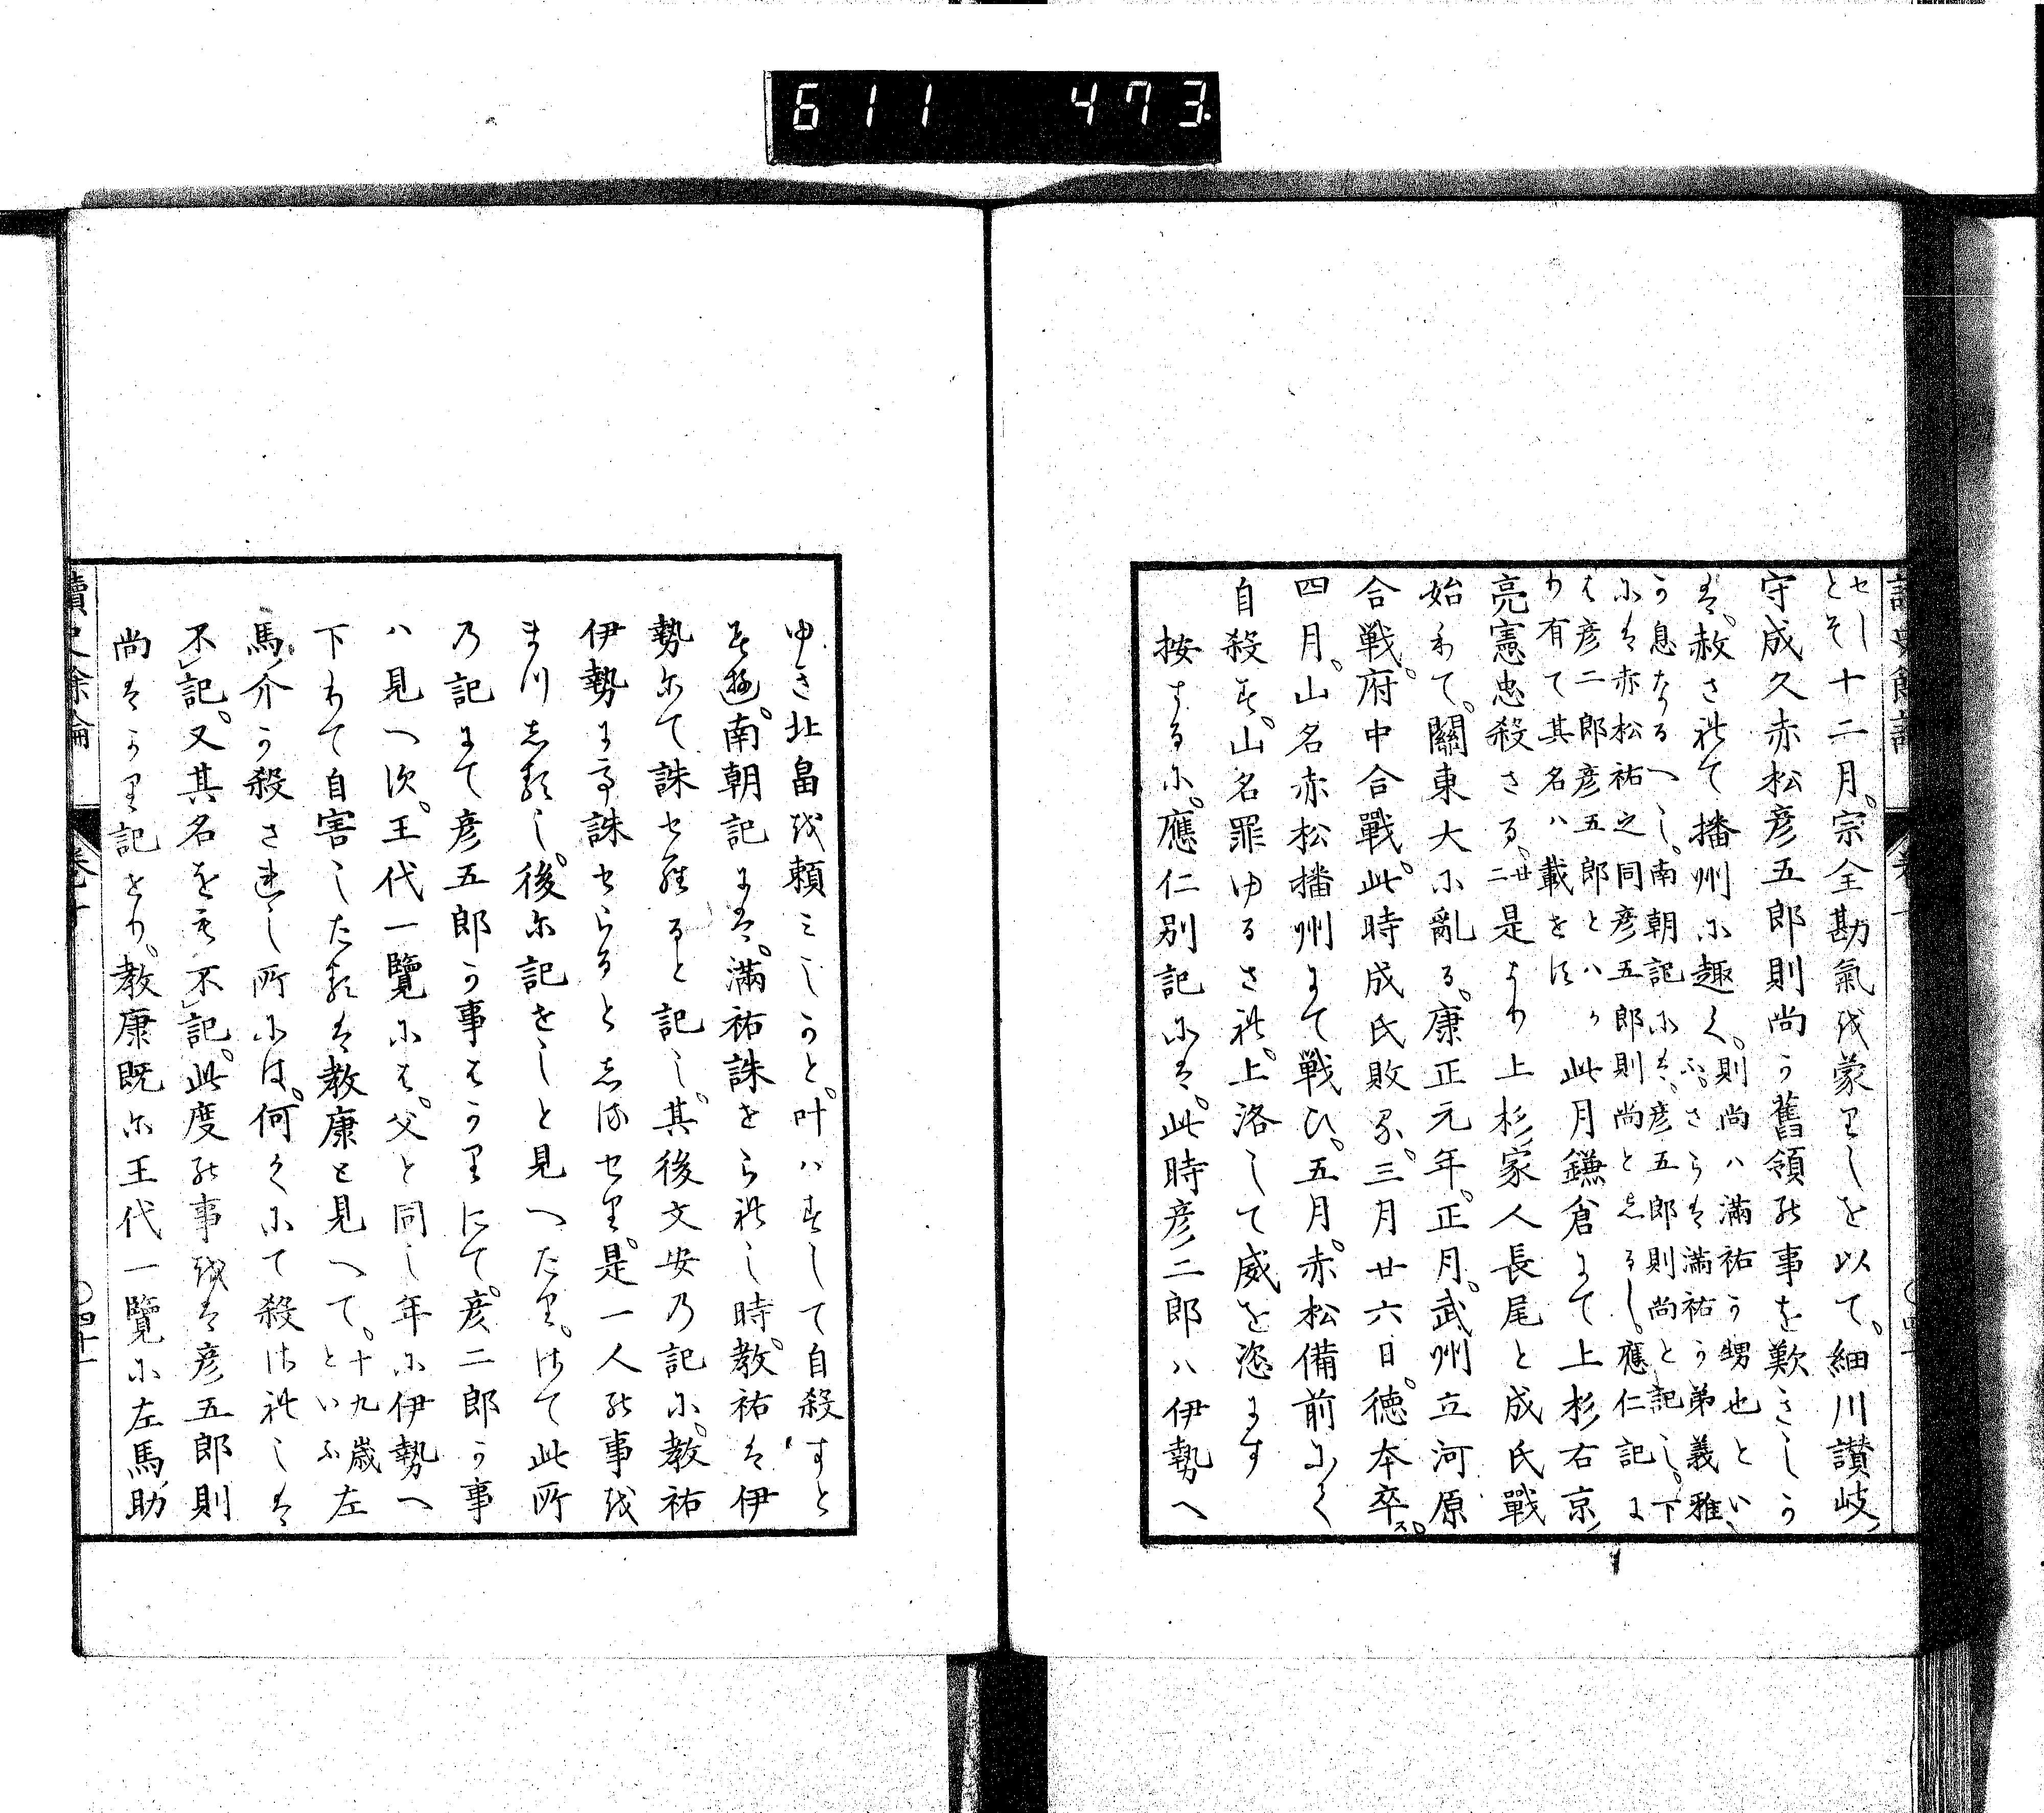 611 473
セし
とそ十二月。宗全勘氣を蒙りしを以て。細川讃岐
守成久赤松彦五郎則尚か舊領の事を歎きしか
は。赦されて播州に趣く。則尚ハ滿祐か甥也とい
ふ。さらは滿祐か弟義雅
か息なるへし。南朝記には。彦五郎則尚と記し。下
には赤松祐之同彦五郎則尚としるし。應仁記に
は彦二郎彦五郎とハか
り有て其名ハ載をす
此月鎌倉にて上杉右京
亮憲忠殺さる。廿二是より上杉家人長尾と成氏戰
始りて。關東大に亂る。康正元年。正月。武州立河原
合戰。府中合戰。此時成氏敗る。三月廿六日。徳本卒ス。
四月。山名赤松播州にて戰ひ。五月。赤松備前にて
自殺す。山名罪ゆるされ。上洛して威を恣にす
按するに。應仁別記には。此時彦二郎ハ伊勢へ
ゆき北畠を頼ミしかと。叶ハすして自殺すと
す。南朝記には。滿祐誅をられし時。教祐は伊
勢にて誅せらると記し。其後文安乃記に。教祐
伊勢にて誅せらるとしるせり。是一人の事を
まつしるし。後に記をしと見へたり。けて此所
乃記にて彦五郎か事はかりにて。彦二郎か事
ハ見へす。王代一覽には。父と同し年に伊勢へ
下りて自害したるは教康と見へて。十九歳
といふ左
馬介か殺されし所には。何くにて殺されしは
不記。又其名をも不記。此度の事をは彦五郎則
尚はかり記とり。教康既に王代一覽に左馬助
讀史餘論 卷十 〇四十一